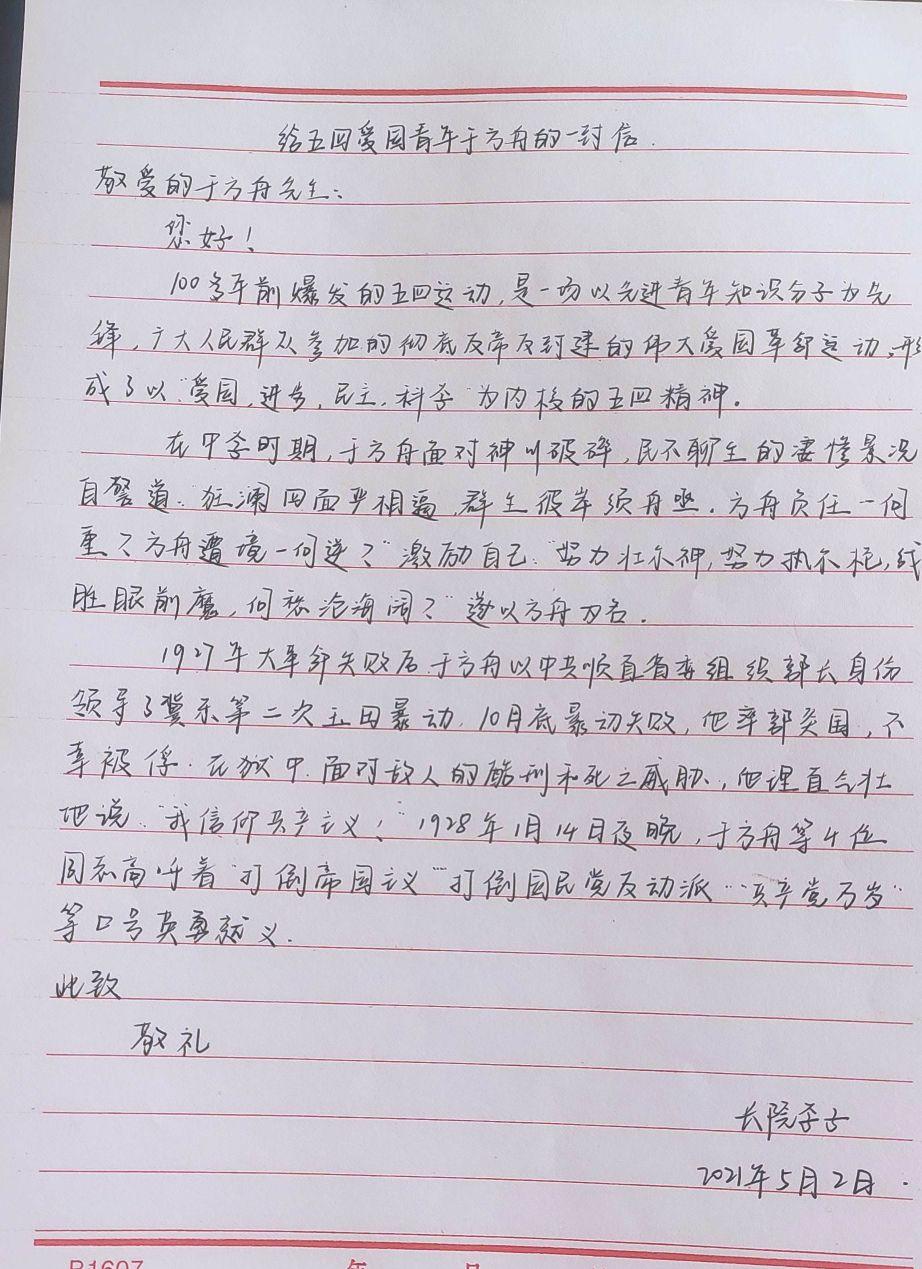 给五四爱国青年于方舟的一封信.
敬爱的于方舟先生:
您好!
100多年前爆发的五四运动,是一场以先进青年知识分子为先
锋,广大人民群众参加的彻底反帝反封建的伟大爱国革命运动,形
成了以“爱国,进步,民主,科学”为内核的五四精神.
在中学时期,于方舟面对神州破碎,民不聊生的凄惨景况
自警道:“狂澜四面严相逼,群生彼岸须舟亟.方舟负任一何
重?方舟遭境一何逆?”激励自己:“努力壮尔神,努力执尔柁,战
胜眼前魔,何愁沧海阔?”遂以方舟为名.
1927年大革命失败后于方舟以中共顺直省委组织部长身份
领导了冀东第二次玉田暴动.10月底暴动失败,他率部突围,不
幸被俘.在狱中.面对敌人的酷刑和死亡威胁,他理直气壮
地说:“我信仰共产主义!”1928年1月14日夜晚,于方舟等4位
同志高呼着“打倒帝国议”“打倒国民党反动派”“共产党万岁”
等口号英勇就义.
此致
敬礼
长院学子
2021年5月2日.
R1607
年 月